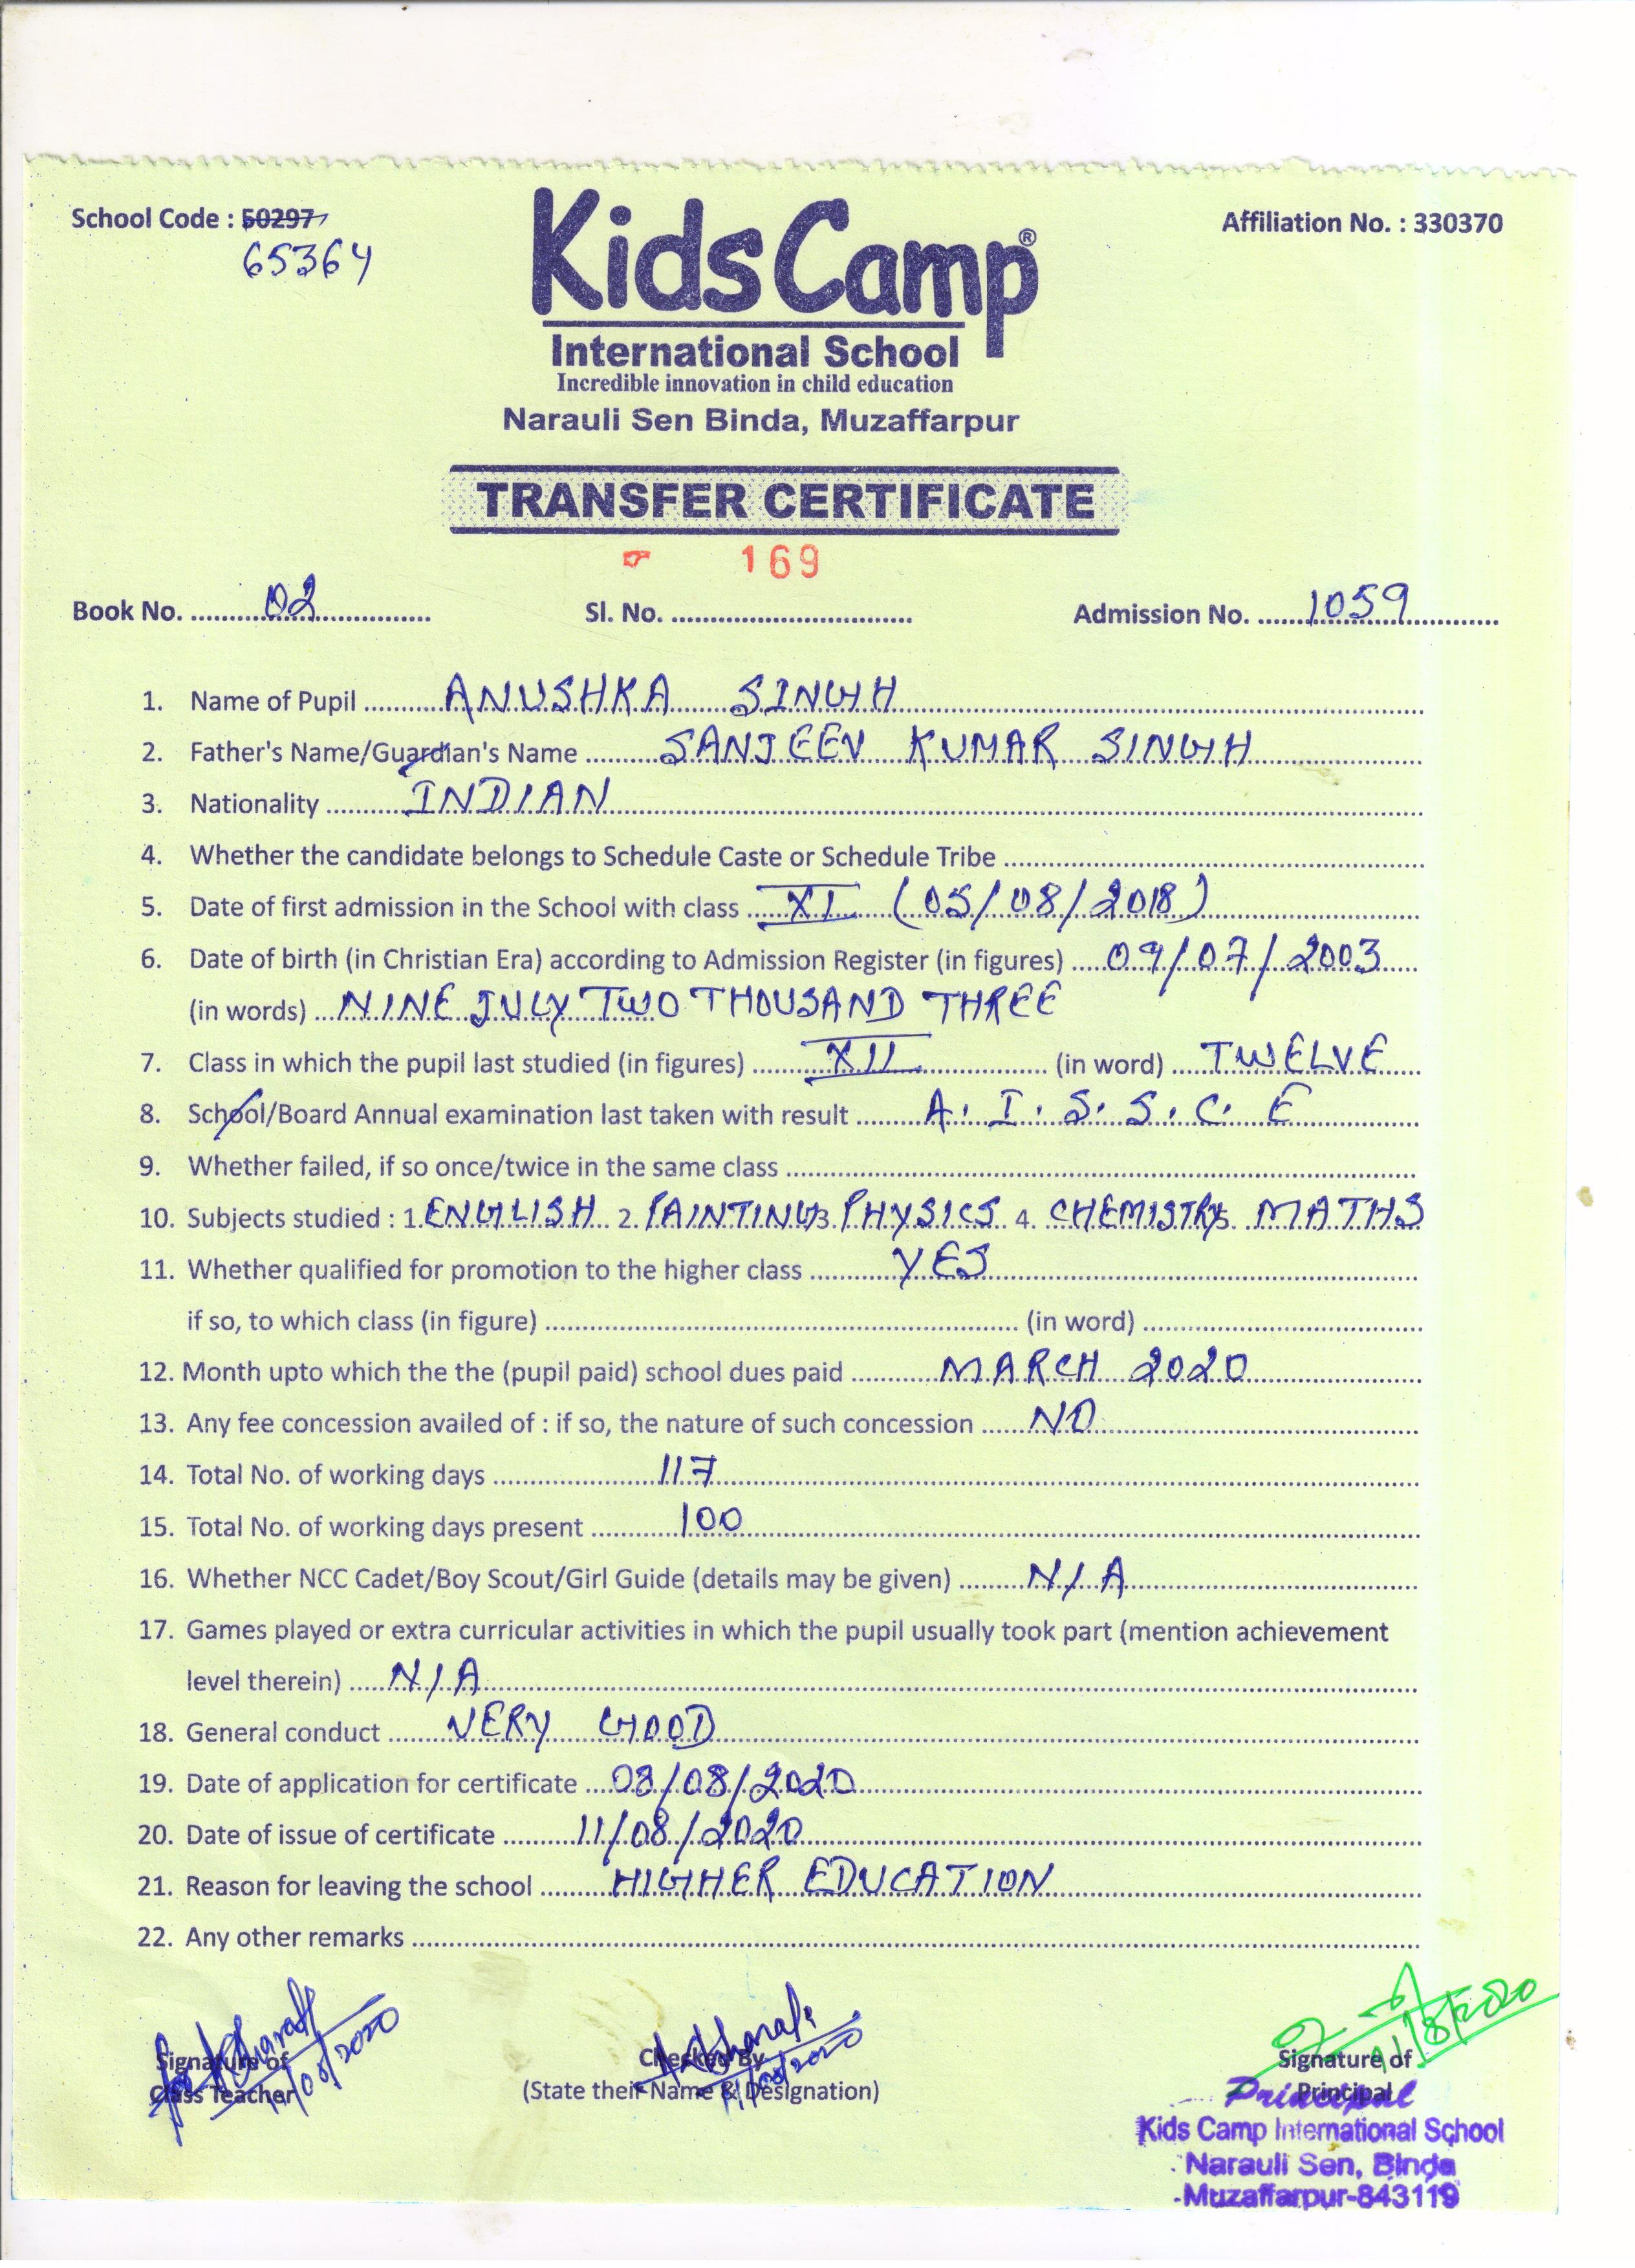 School Code : 50297
65364
Affiliation No. : 330370
Kids Camp®
International School
Incredible innovation in child education
Narauli Sen Binda, Muzaffarpur
TRANSFER CERTIFICATE
169
Book No. 02 Sl. No. Admission No. 1059
1. Name of Pupil ANUSHKA SINGH
2. Father's Name/Guardian's Name SANJEEV KUMAR SINGH
3. Nationality INDIAN
4. Whether the candidate belongs to Schedule Caste or Schedule Tribe
5. Date of first admission in the School with class XI (05/08/2018)
6. Date of birth (in Christian Era) according to Admission Register (in figures) 09/07/2003
(in words) NINE JULY TWO THOUSAND THREE
7. Class in which the pupil last studied (in figures) XII (in word) TWELVE
8. School/Board Annual examination last taken with result A. I. S. S. C. E
9. Whether failed, if so once/twice in the same class
10. Subjects studied : 1. ENGLISH 2. PAINTING 3. PHYSICS 4. CHEMISTRY 5. MATHS
11. Whether qualified for promotion to the higher class YES
if so, to which class (in figure) (in word)
12. Month upto which the the (pupil paid) school dues paid MARCH 2020
13. Any fee concession availed of : if so, the nature of such concession NO
14. Total No. of working days 117
15. Total No. of working days present 100
16. Whether NCC Cadet/Boy Scout/Girl Guide (details may be given) N/A
17. Games played or extra curricular activities in which the pupil usually took part (mention achievement
level therein) N/A
18. General conduct VERY GOOD
19. Date of application for certificate 08/08/2020
20. Date of issue of certificate 11/08/2020
21. Reason for leaving the school HIGHER EDUCATION
22. Any other remarks
11/08/2020 11/08/2020 11/8/2020
Signature of Checked By Signature of
Class Teacher (State their Name & Designation) Principal
Principal
Kids Camp International School
Narauli Sen, Binda
Muzaffarpur-843119